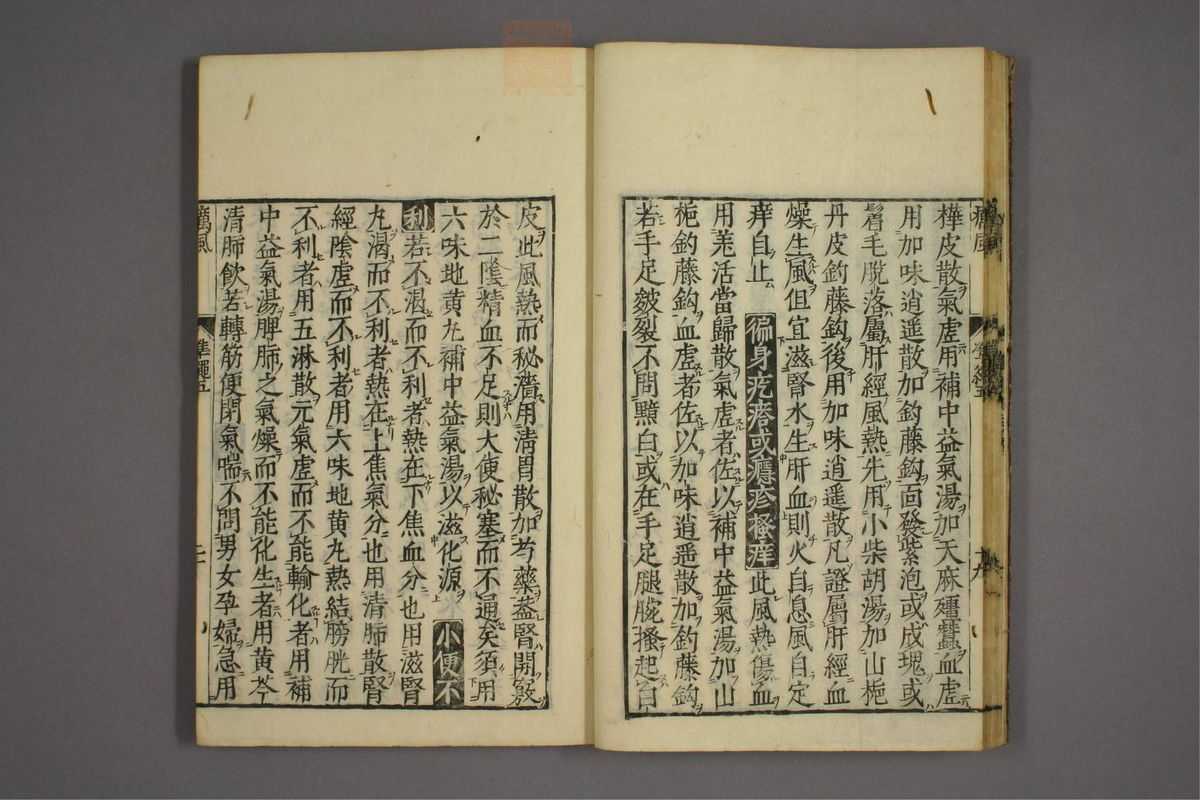 癘風
準繩五
十九
樺皮散氣虛用補中益氣湯加天麻殭蠶血虛
用加味逍遥散加釣藤鈎面發紫泡或成塊或
眉毛脫落屬肝經風熱先用小柴胡湯加山梔
丹皮釣藤鈎後用加味逍遥散凡證屬肝經血
燥生風但宜滋腎水生肝血則火自息風自定
痒自止 徧身疙瘩或癮疹搔痒 此風熱傷血
用羌活當歸散氣虛者佐以補中益氣湯加山
梔釣藤鈎血虛者佐以加味逍遥散加釣藤鈎
若手足皴裂不問黯白或在手足腿腕搔起白
皮此風熱而秘濇用淸胃散加芍藥葢腎開竅
於二陰精血不足則大便秘塞而不通矣須用
六味地黃丸補中益氣湯以滋化源 小便不
利若不渴而不利者熱在下焦血分也用滋腎
丸渴而不利者熱在上焦氣分也用清肺散腎
經陰虛而不利者用六味地黃丸熱結膀胱而
不利者用五淋散元氣虛而不能輸化者用補
中益氣湯脾肺之氣燥而不能化生者用黃芩
清肺飲若轉筋便閉氣喘不問男女孕婦急用
癘風
準繩五
二十